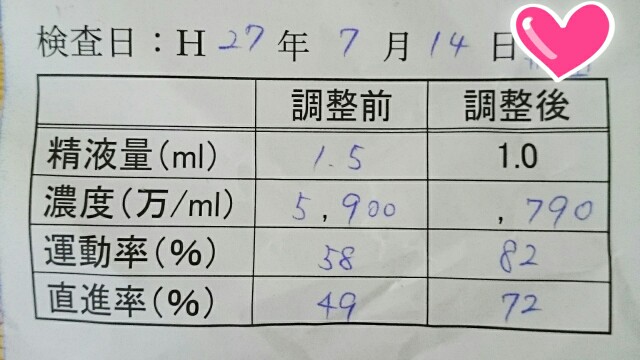 検査日：H 27 年 7 月 14 日
調整前 調整後
精液量(ml) 1.5 1.0
濃度(万/ml) 5,900 ,790
運動率(%) 58 82
直進率(%) 49 72